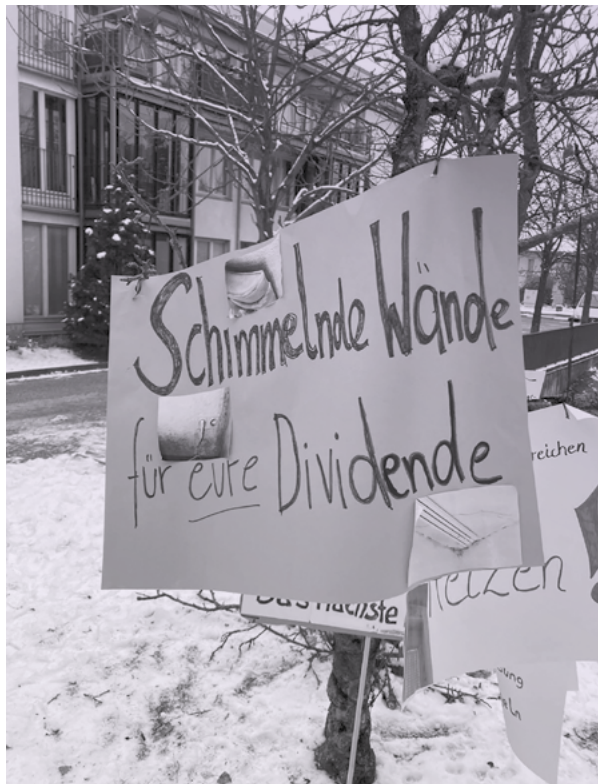 Schimmelnde Wände
für eure Dividende
reichen
Das nächste